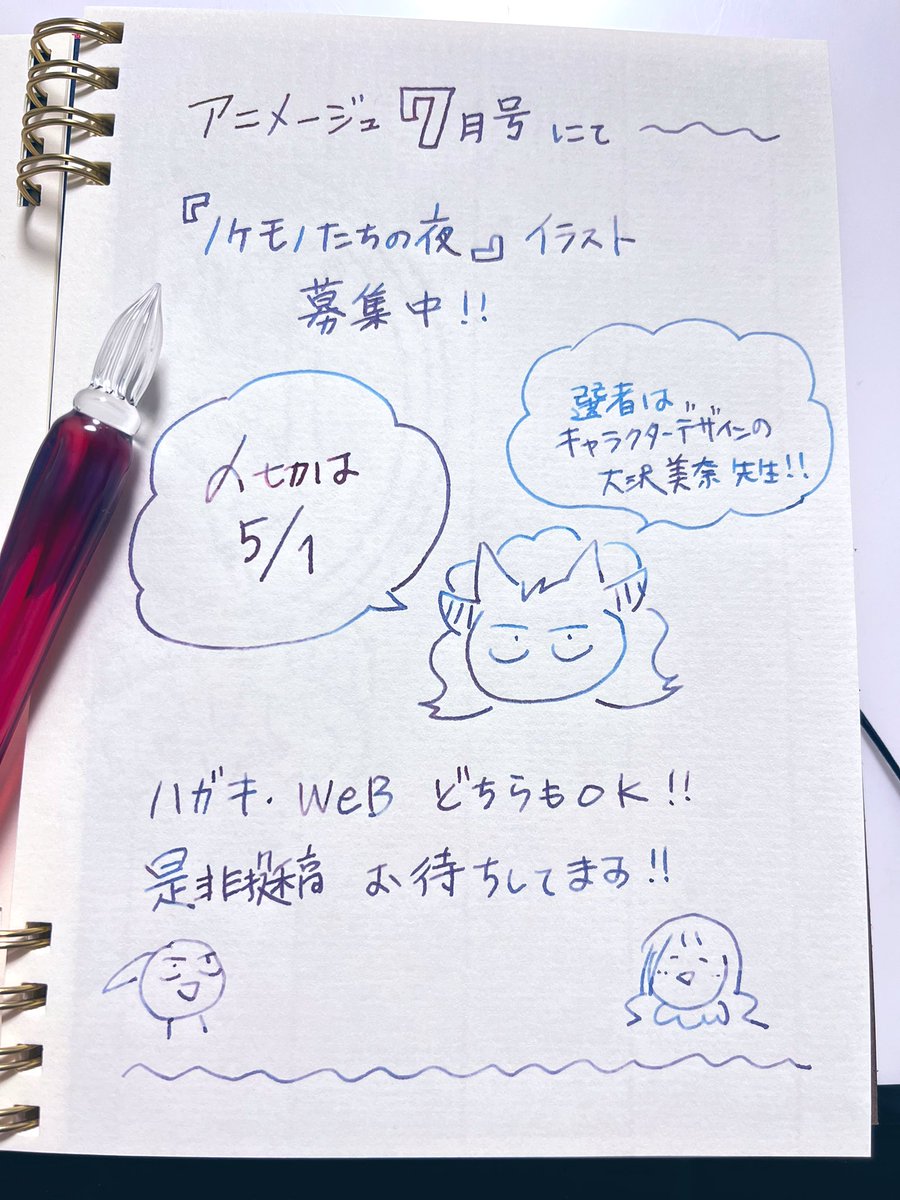 アニメージュ 7月号 にて
『ノケモノたちの夜』イラスト
募集中!!
選者は
キャラクターデザインの
大沢美奈先生!!
〆切は
5/1
ハガキ・WeB どちらもOK!!
是非投稿 お待ちしてます!!